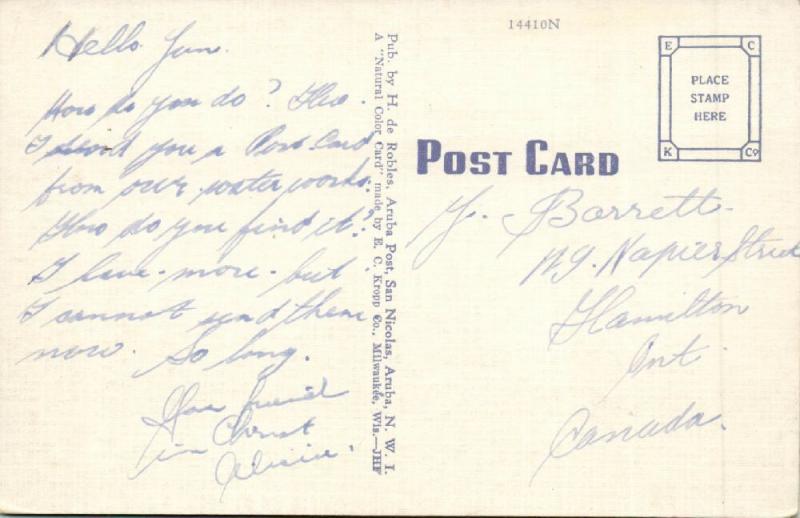 Hello Jim.
How do you do? Here.
I send you a Post Card
from our water works.
How do you find it?
I have more but
I cannot send them
now. So long.
Your friend
in Christ
Alicia.
Pub. by H. de Robles, Aruba Post, San Nicolas, Aruba, N. W. I.
A "Natural Color Card" made by E. C. Kropp Co., Milwaukee, Wis.—JHF
14410N
E C
PLACE
STAMP
HERE
K Co
POST CARD
J. Barrett
Napier Street
Hamilton
Ont.
Canada.